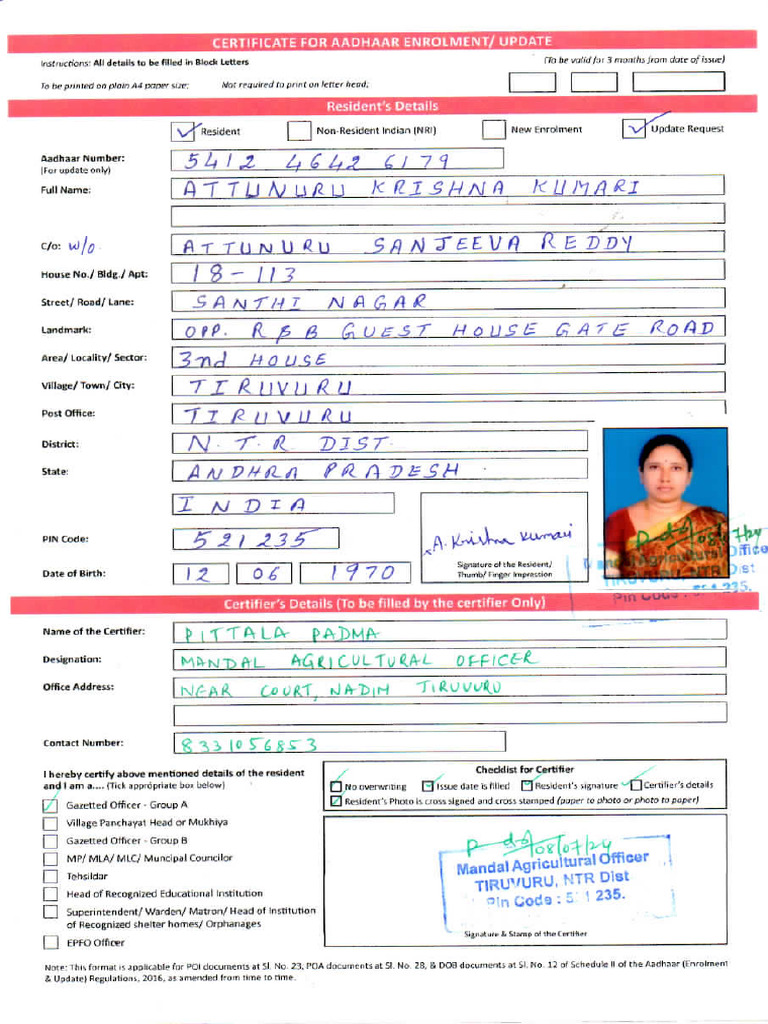 CERTIFICATE FOR AADHAAR ENROLMENT/ UPDATE
Instructions: All details to be filled in Block Letters (To be valid for 3 months from date of issue)
To be printed on plain A4 paper size; Not required to print on letter head;
Resident's Details
Resident Non-Resident Indian (NRI) New Enrolment Update Request
Aadhaar Number: 5412 4642 6179
(For update only)
Full Name: ATTUNURU KRISHNA KUMARI
C/o: W/o ATTUNURU SANJEEVA REDDY
House No./ Bldg./ Apt: 18-113
Street/ Road/ Lane: SANTHI NAGAR
Landmark: OPP. R&B GUEST HOUSE GATE ROAD
Area/ Locality/ Sector: 3nd HOUSE
Village/ Town/ City: TIRUVURU
Post Office: TIRUVURU
District: N.T.R DIST.
State: ANDHRA PRADESH
INDIA
PIN Code: 521235
A. Krishna Kumari
Signature of the Resident/
Thumb/ Finger Impression
08/07/24
Mandal Agricultural Office
TIRUVURU, NTR Dist
Pin Code : 521 235.
Date of Birth: 12 06 1970
Certifier's Details (To be filled by the certifier Only)
Name of the Certifier: PITTALA PADMA
Designation: MANDAL AGRICULTURAL OFFICER
Office Address: NEAR COURT, NADIM TIRUVURU
Contact Number: 8331056853
I hereby certify above mentioned details of the resident
and I am a.... (Tick appropriate box below)
Gazetted Officer - Group A
Village Panchayat Head or Mukhiya
Gazetted Officer - Group B
MP/ MLA/ MLC/ Muncipal Councilor
Tehsildar
Head of Recognized Educational Institution
Superintendent/ Warden/ Matron/ Head of Institution
of Recognized shelter homes/ Orphanages
EPFO Officer
Checklist for Certifier
No overwriting Issue date is filled Resident's signature Certifier's details
Resident's Photo is cross signed and cross stamped (paper to photo or photo to paper)
08/07/24
Mandal Agricultural Officer
TIRUVURU, NTR Dist
Pin Code : 521 235.
Signature & Stamp of the Certifier
Note: This format is applicable for POI documents at Sl. No. 23, POA documents at Sl. No. 28, & DOB documents at Sl. No. 12 of Schedule II of the Aadhaar (Enrolment
& Update) Regulations, 2016, as amended from time to time.